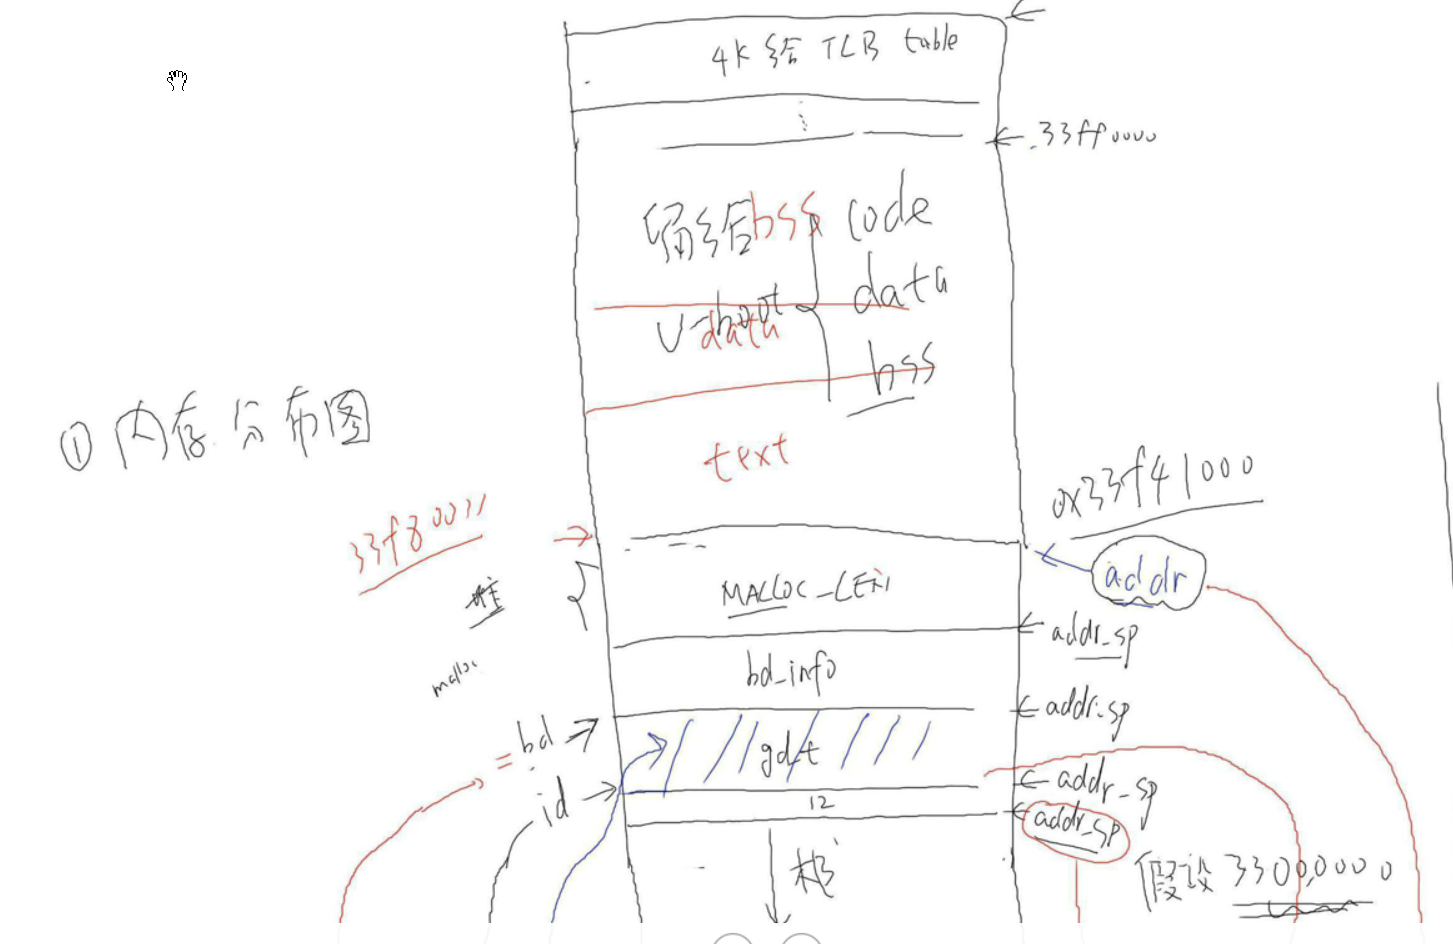 4K给 TLB table
33ff0000
留给 bss code
data
u-boot
data
bss
① 内存分布图
text
0x33f41000
33f80000
addr
堆
MALLOC_LEN
addr_sp
malloc
bd_info
addr_sp
= bd
gd_t
id
addr_sp
12
addr_sp
栈
假设 33000000